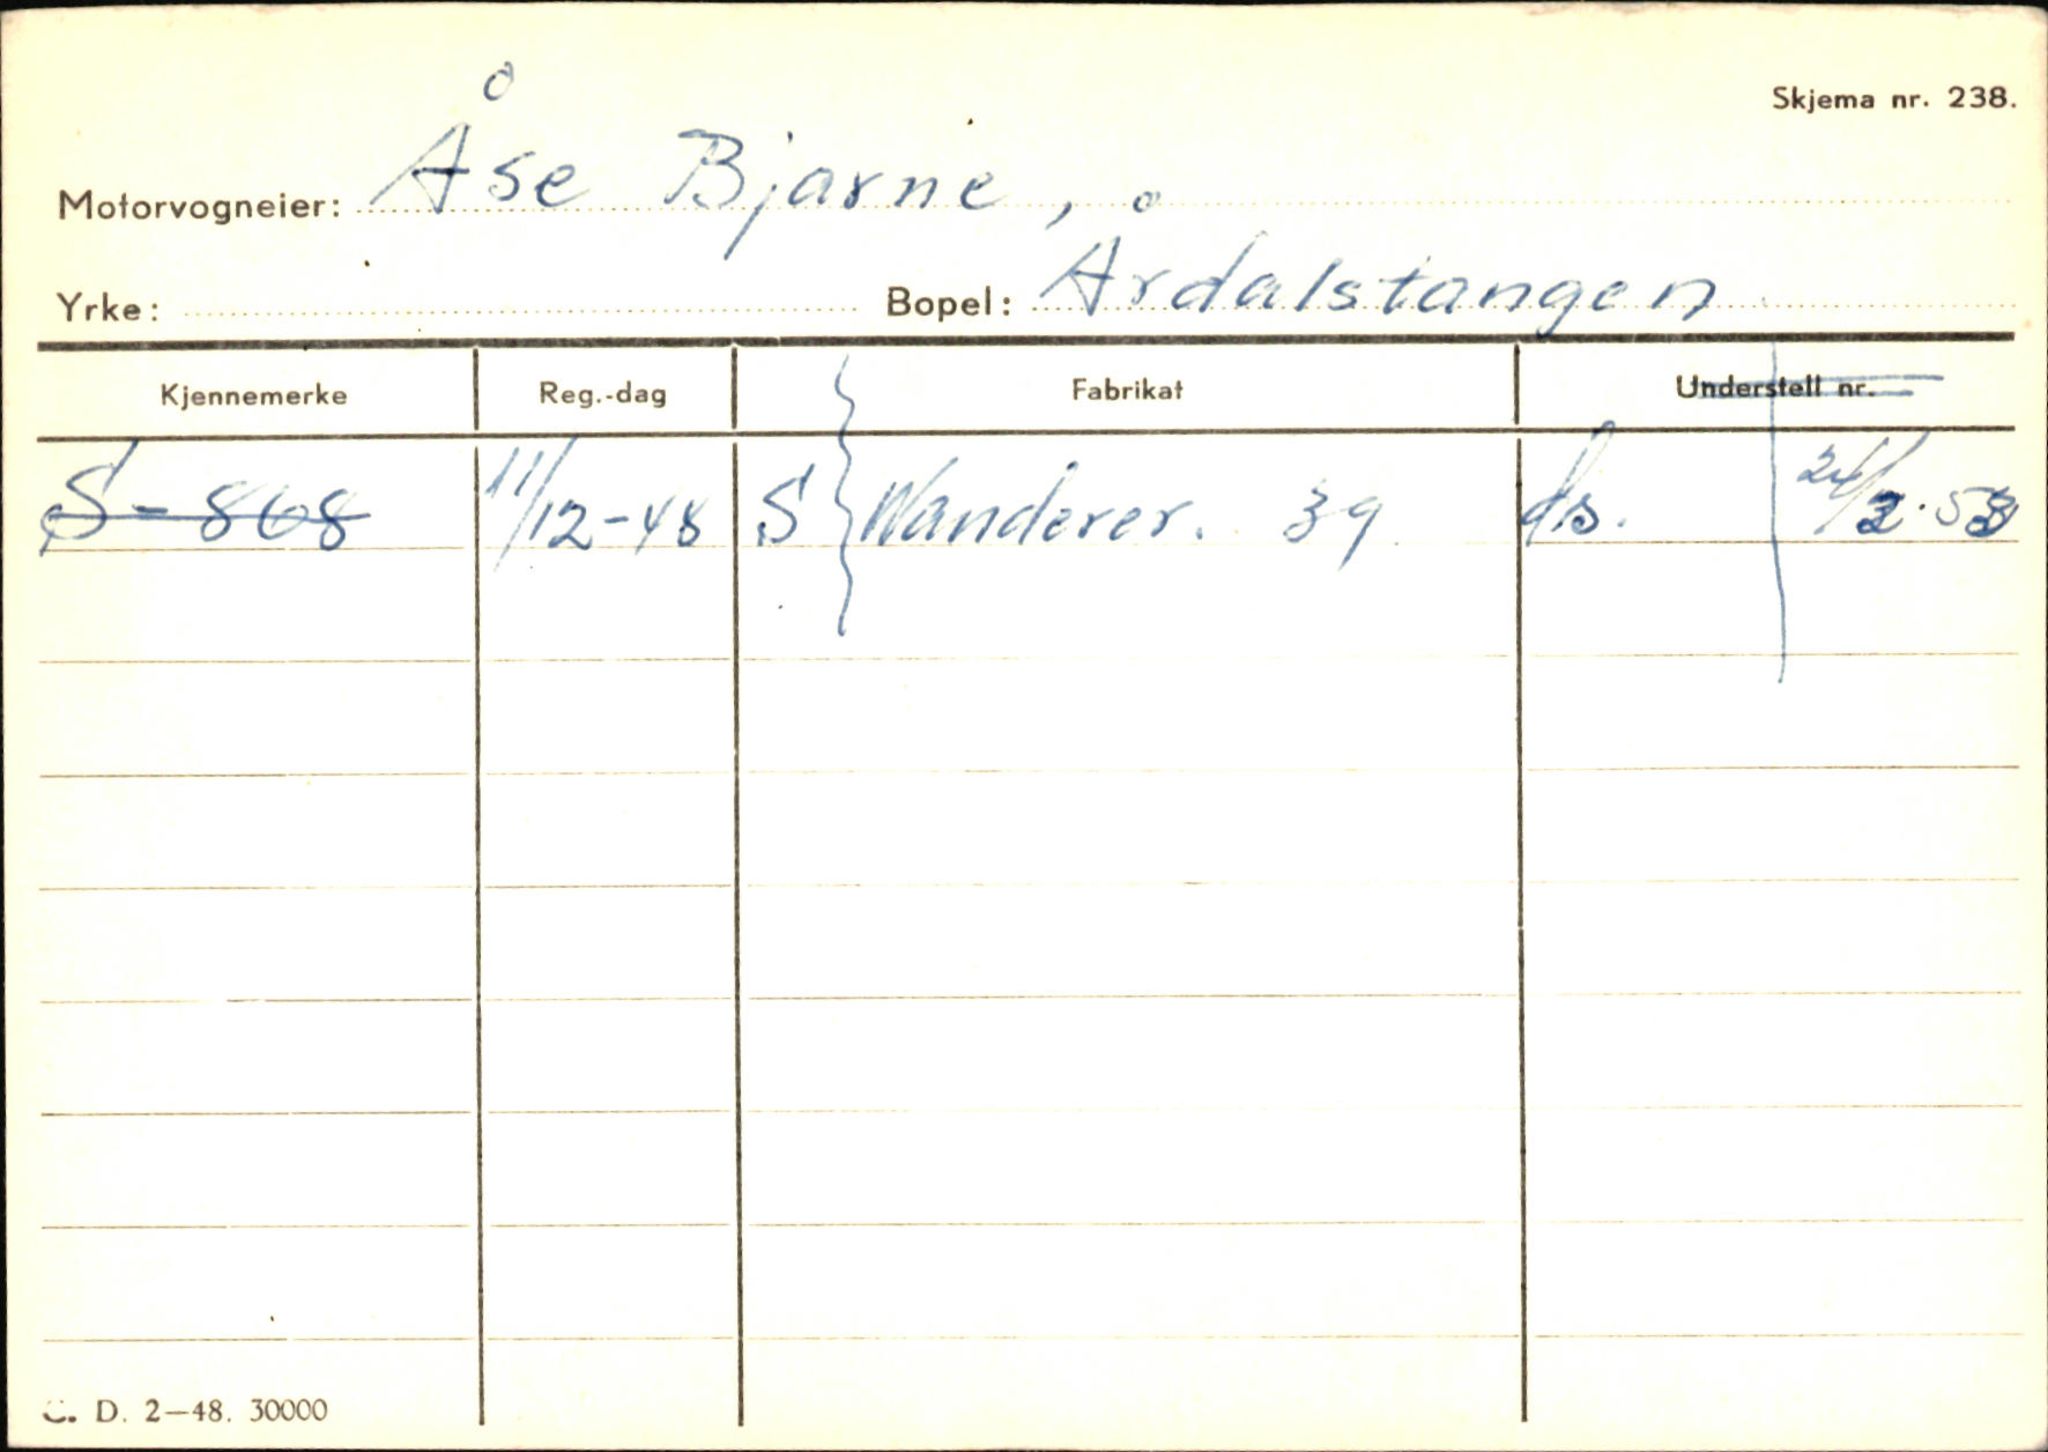 Skjema nr. 238.
Motorvogneier: Åse Bjarne,
Yrke: Bopel: Årdalstangen
Kjennemerke Reg.-dag Fabrikat Understell nr.
S-868 11/12-48 S Wanderer. 39 ds. 24/2.53
C. D. 2—48. 30000